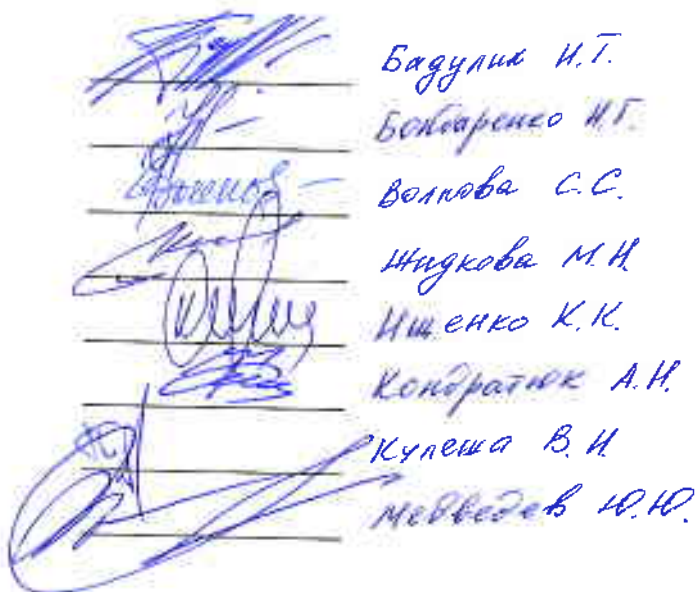 Бадулин Н.Т.
Бондаренко Н.Г.
Волкова С.С.
Жидкова М.Н.
Ищенко К.К.
Кондратюк А.Н.
Кулеша В.И.
Медведев Ю.Ю.